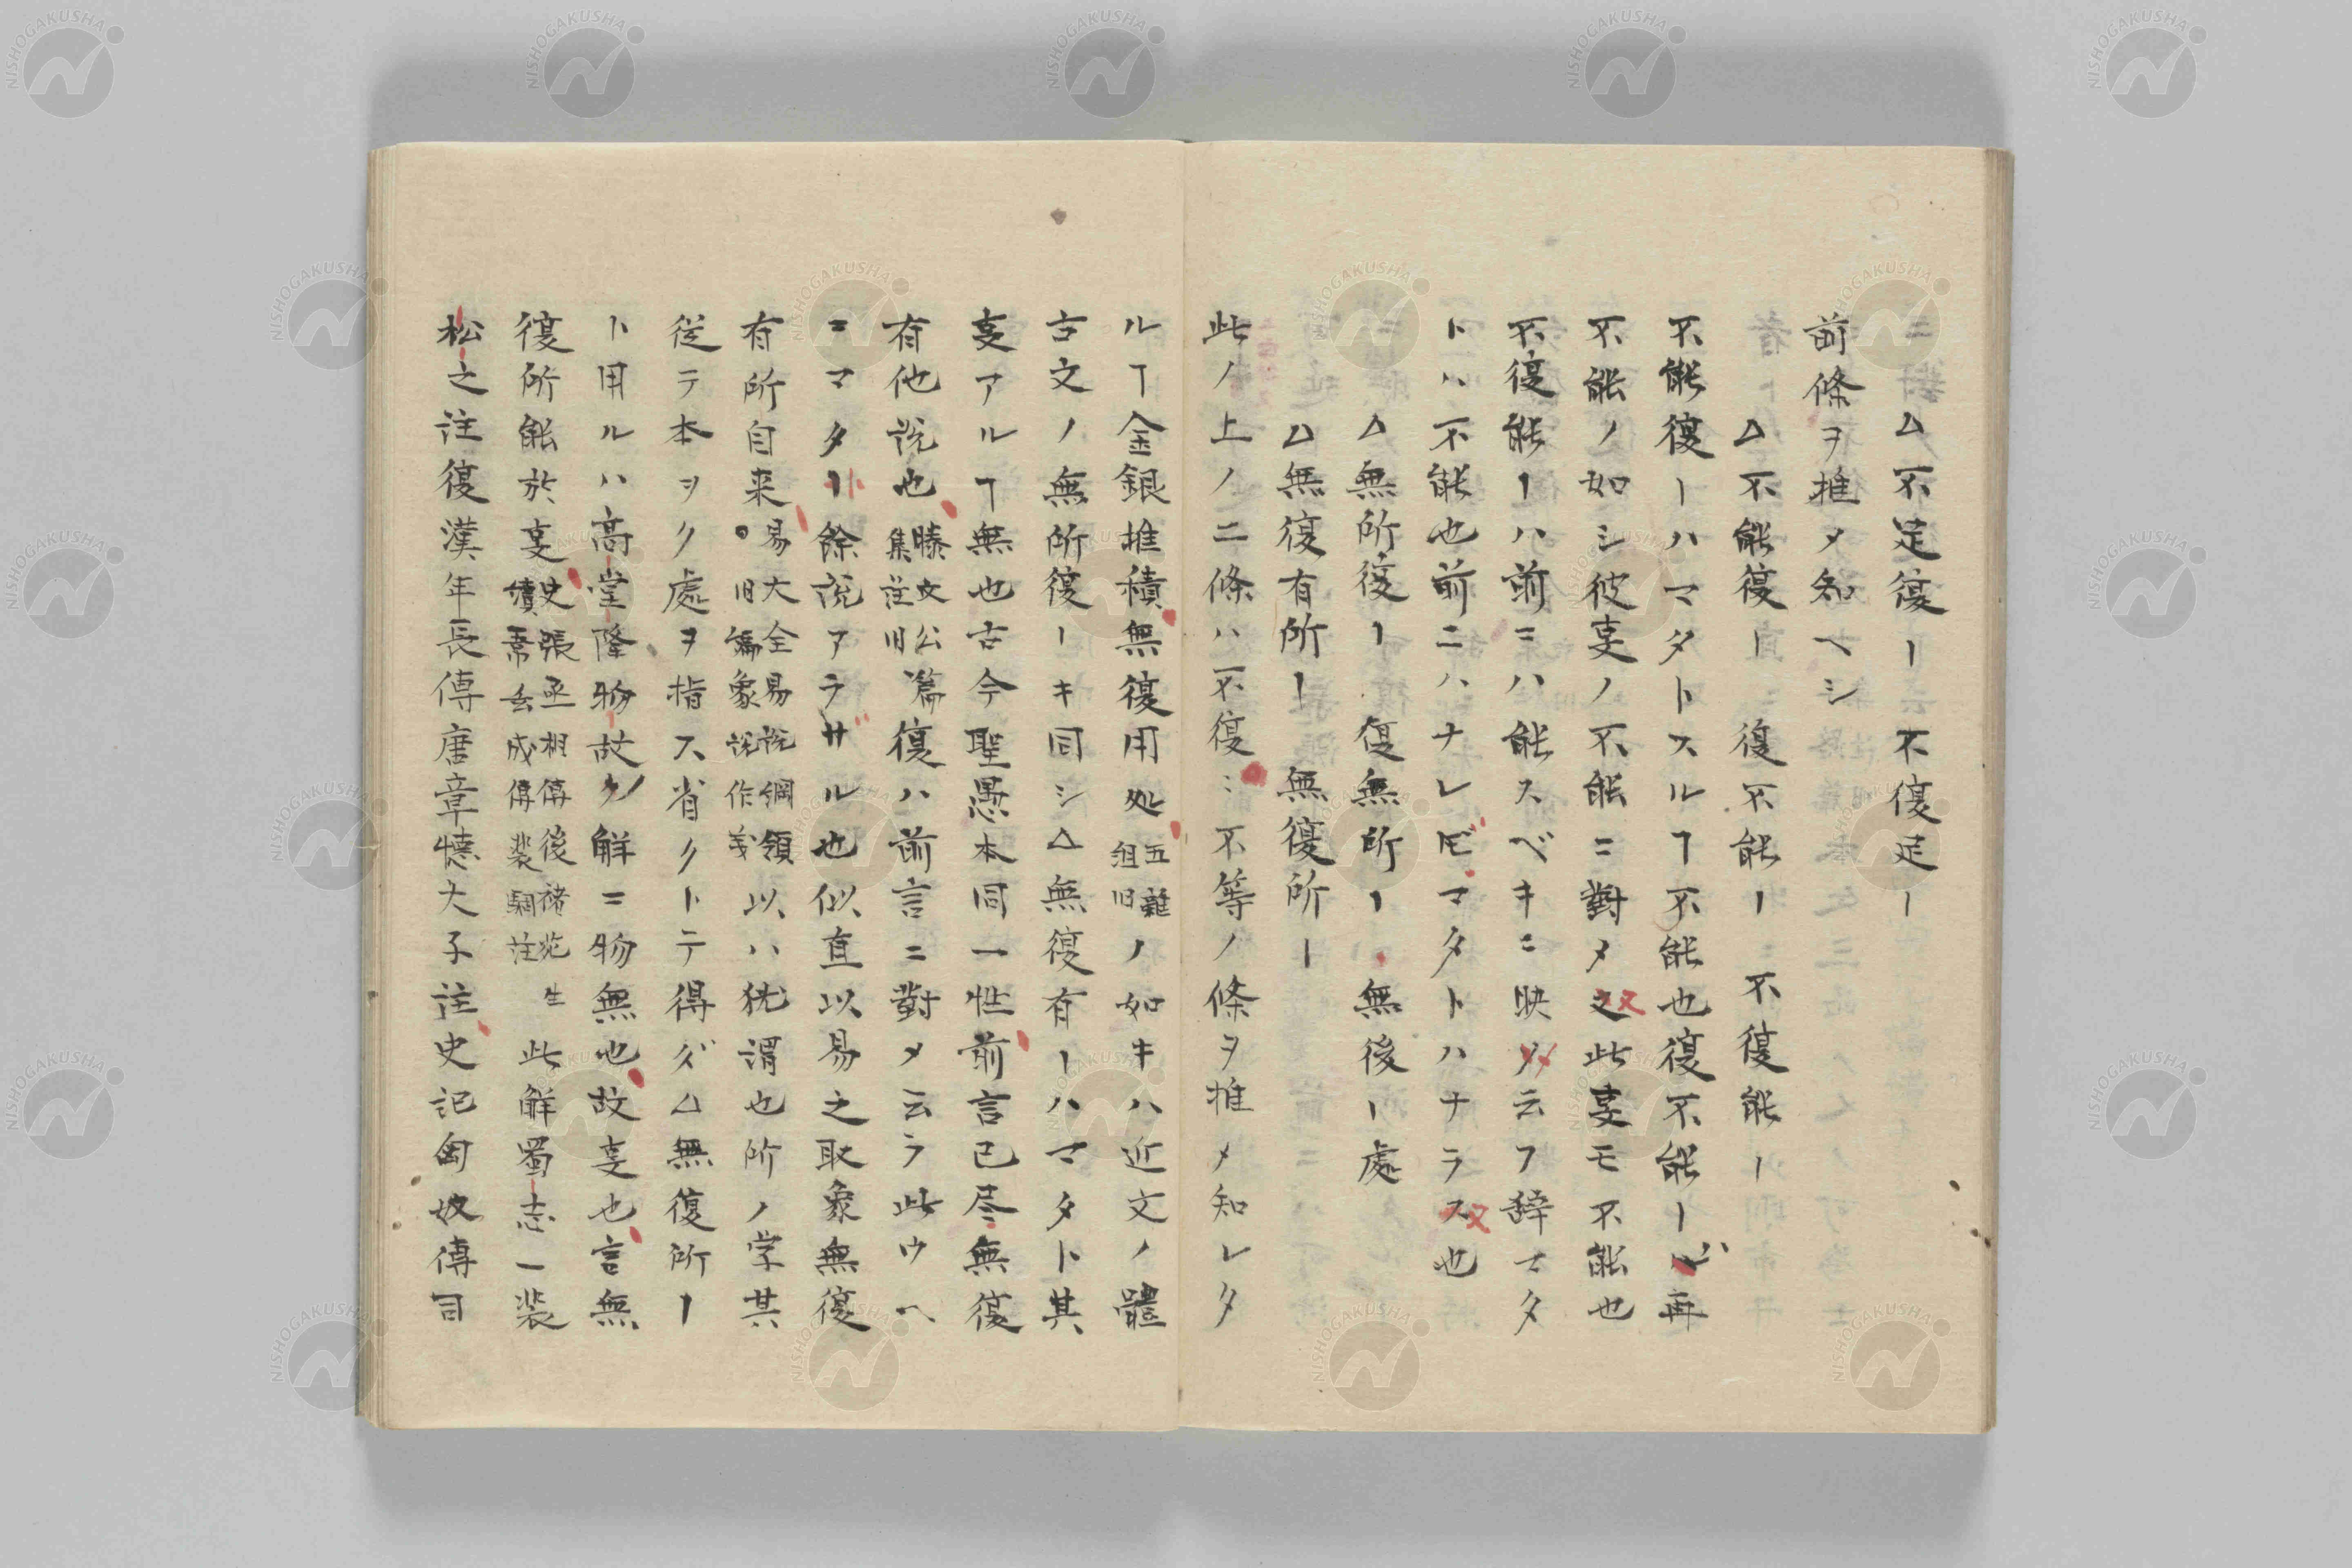 △不足復ー 不復足ー
前條ヲ推メ知ヘシ
△不能復ー 復不能ー 不復能ー
不能復ーハマタトスルヿ不能也復不能ーハ再
不能ノ如シ彼叓ノ不能ニ對メ又此叓モ不能也
不復能ーハ前ニハ能スベキニ映メ云フ辞ナタ
トハ不能也前ニハナレドモマタトハナラヌ也
△無所復ー 復無所ー 無後ー處
△無復有所ー 無復所ー
此ノ上ノ二條ハ不復ニ不等ノ條ヲ推メ知レタ
ルヿ金銀堆積無復用処五雜組旧ノ如キハ近文ノ體
古文ノ無所復ーキ同シ△無復有ーハマタト其
叓アルヿ無也古今聖愚本同一性前言已尽無復
有他説也滕文公篇集注旧復ハ前言ニ對メ云ラ此ウヘ
ニマター餘説アラザル也似直以易之取象無復
有所自来易大全易説綱領旧譌象説作義以ハ犹謂也所ノ字其
従テ本ヲク處ヲ指ス省クトテ得ズ△無復所ー
ト用ルハ高堂隆物故ノ解ニ物無也故叓也言無
復所能於叓史張丞相傳後褚先生續呑厺成傳裴駰注此解蜀志一裴
松之注復漢年長傳唐章懐大子注史記匈奴傳司
NISHOGAKUSHA